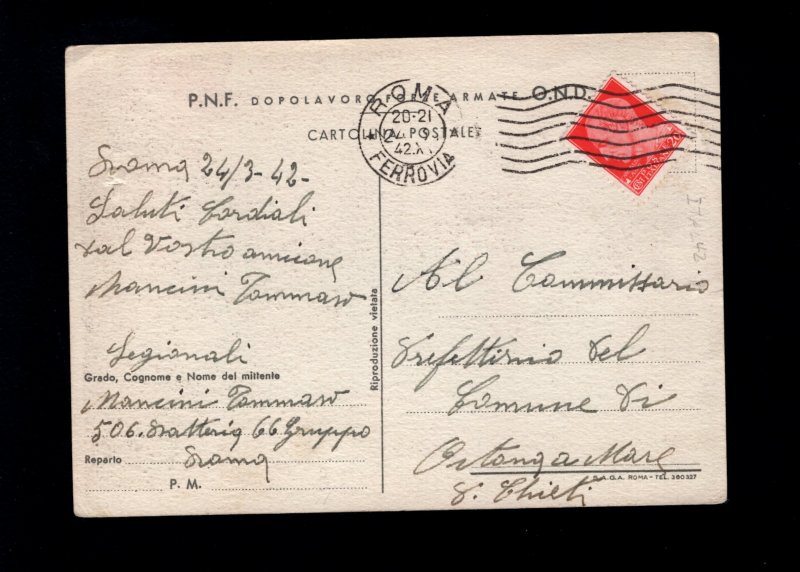 P.N.F. DOPOLAVORO FORZE ARMATE O.N.D.
CARTOLINA POSTALE
ROMA
20-21
24
42.X
FERROVIA
Roma 24/3-42-
Saluti Cordiali
dal Vostro amicone
Mancini Tommaso
Legionali
Grado, Cognome e Nome del mittente
Mancini Tommaso
506. Batteria 66 Gruppo
Reparto Roma
P. M.
Riproduzione vietata
Al Commissario
Prefettizio del
Comune di
Ortona a Mare
P. Chieti
A.G.A. ROMA - TEL. 360327